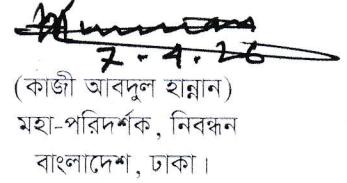 7.4.26
(কাজী আবদুল হান্নান)
মহা-পরিদর্শক, নিবন্ধন
বাংলাদেশ, ঢাকা।